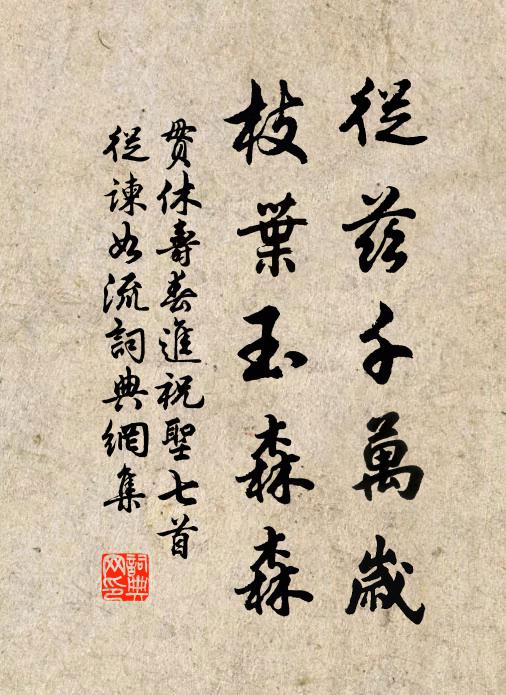 從茲千萬歲
枝葉玉森森
貫休壽春進祝聖七首
從諫如流詞典網集
詞典網印